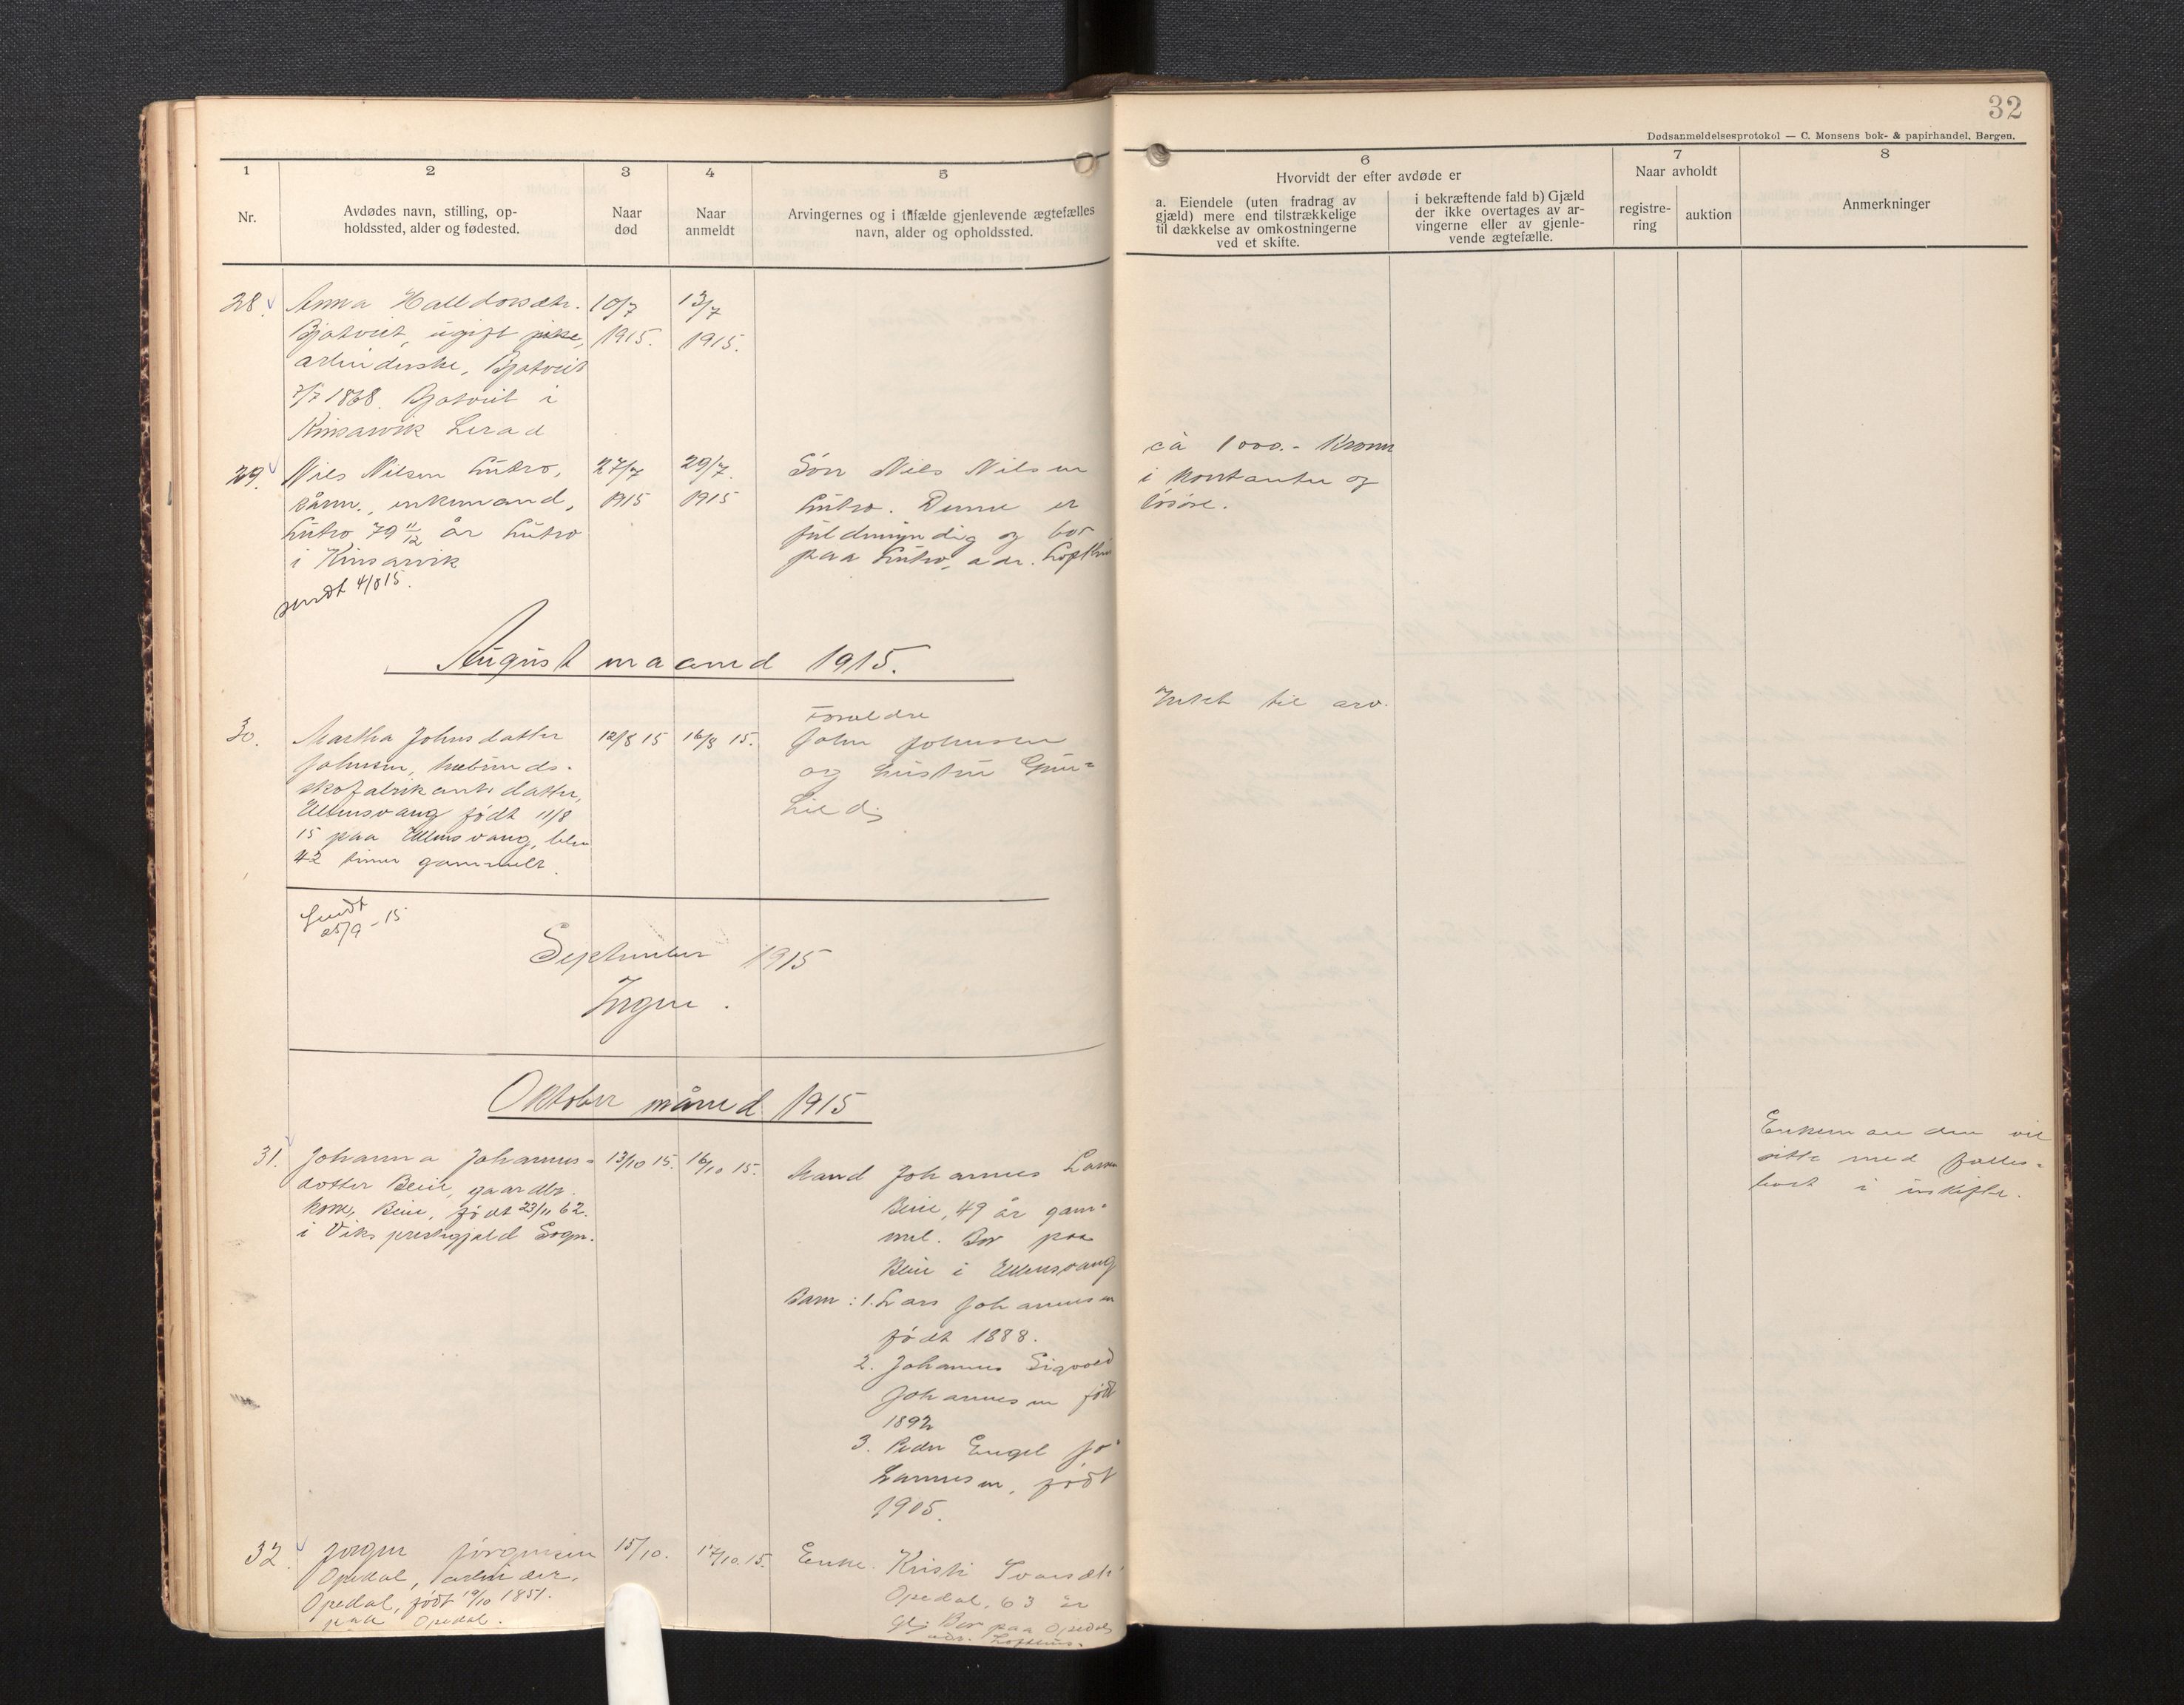 32
Dødsanmeldelsesprotokol — C. Monsens bok- & papirhandel, Bergen.
1
2
3
4
5
6
7
8
Nr.
Avdødes navn, stilling, op-
holdssted, alder og fødested.
Naar
død
Naar
anmeldt
Arvingernes og i tilfælde gjenlevende ægtefælles
navn, alder og opholdssted.
Hvorvidt der efter avdøde er
a. Eiendele (uten fradrag av
gjæld) mere end tilstrækkelige
til dækkelse av omkostningerne
ved et skifte.
i bekræftende fald b) Gjæld
der ikke overtages av ar-
vingerne eller av gjenle-
vende ægtefælle.
Naar avholdt
registre-
ring
auktion
Anmerkninger
28.
Anna Halldorsdtr.
Bjotveit, ugift pike,
arbeiderske, Bjotveit
7/7 1868. Bjotveit i
Kinsarvik herad
10/7
1915.
13/7
1915.
29.
Nils Nilsen Lutro,
kårm., enkemand,
Lutro 79 11/12 år Lutro
i Kinsarvik
sendt 4/8 15.
27/7
1915
29/7.
1915
Søn Nils Nilsen
Lutro. Denne er
fuldmyndig og bor
paa Lutro, adr. Lofthus
ca 1000.- Kroner
i kontanter og
løsøre.
August maaned 1915.
30.
Martha Johnsdatter
Johnsen,
skofabrikants datter,
Ullensvang født 11/8
15 paa Ullensvang, blev
42 timer gammelt.
12/8 15
16/8 15.
Forældre
John Johnsen
og hustru Gun=
hild
Intet til arv.
Sendt
25/9-15
September 1915
Ingen.
Oktober måned 1915
31.
Johanna Johannes=
dotter Beie, gaardbr.
kone, Beie, født 23/11 62.
i Viks prestegjæld Sogn.
13/10 15.
16/10 15.
Mand Johannes Larsen
Beie, 49 år gam=
mel. Bor paa
Beie i Ullensvang
Barn: 1. Lars Johannesen
født 1888.
2. Johannes Sigvald
Johannesen født
1892
3. Peder Engel Jo=
hannesen, født
1905.
Enkemanden vil
sitte med fælles=
boet i uskifte.
32.
Jørgen Jørgensen
Opedal, arbeider,
Opedal, født 19/10 1851.
paa Opedal.
15/10.
17/10. 15.
Enke. Kristi Ivarsdtr
Opedal, 63 år
gl. Bor paa Opedal
adr. Lofthus.